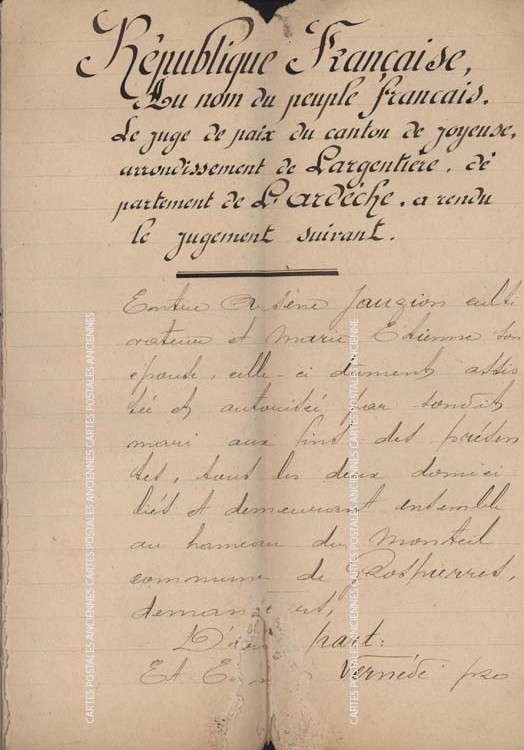 République Française,
Au nom du peuple francais.
Le juge de paix du canton de joyeuse,
arrondissement de Largentière. dé
partement de L'ardèche. a rendu
le jugement suivant.
Entre Arsène Jauzion culti
vateur et Marie Etienne son
épouse, celle-ci dument assis
tée et autorisée par sondit
mari aux fins des présen
tes, tous les deux domici
liés et demeurant ensemble
au hameau du Monteil
commune de Rospierres,
D'une part:
Et Vernède pro
CARTES POSTALES ANCIENNES CARTES POSTALES ANCIENNES CARTES POSTALES ANCIENNES
CARTES POSTALES ANCIENNES CARTES POSTALES ANCIENNES CARTES POSTALES ANCIENNES